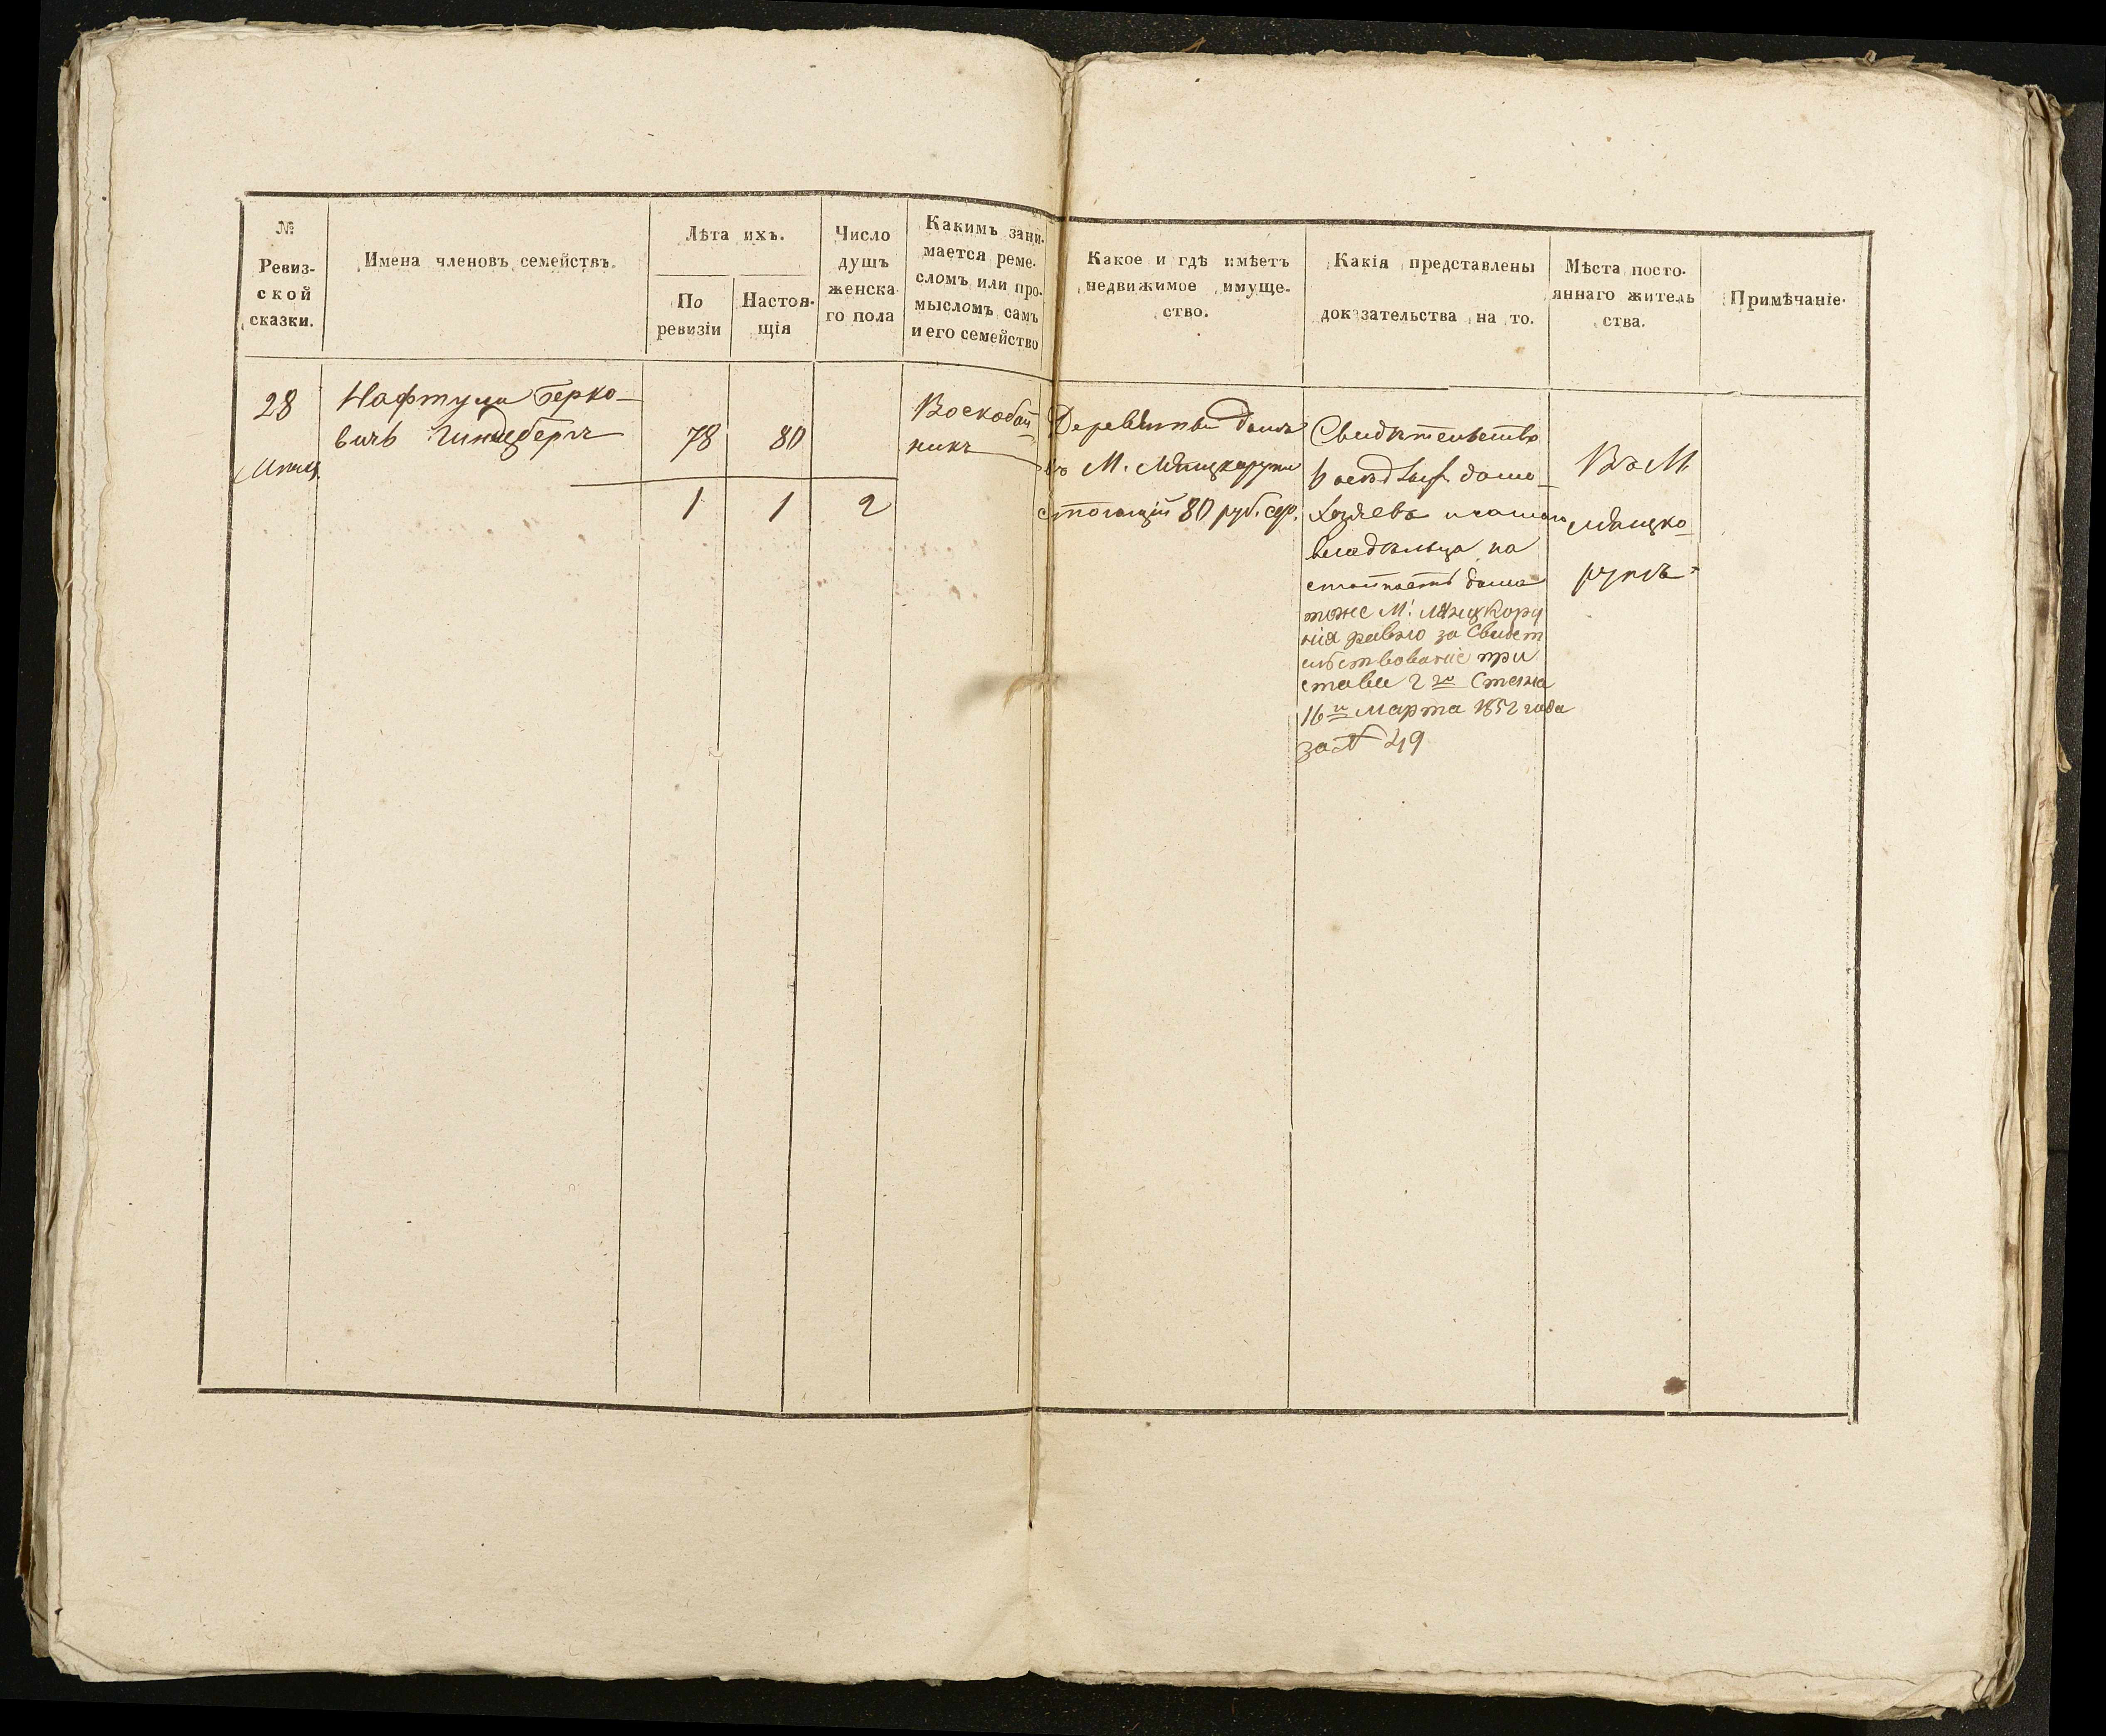 №
Ревиз-
ской
сказки.
Имена членовъ семействъ.
Лѣта ихъ.
По
ревизіи
Настоя-
щія
Число
душъ
женска-
го пола
Какимъ зани-
мается реме-
сломъ или про-
мысломъ самъ
и его семейство
Какое и гдѣ имѣетъ
недвижимое имуще-
ство.
Какія представлены
доказательства на то.
Мѣста посто-
яннаго житель
ства.
Примѣчаніе.
28
Нафтула Берко-
вичъ Гинцбергъ
78
80
1
1
2
Воскобой-
никъ
Деревянный домъ
въ М. Лянцкоруни
стоющій 80 руб. сер.
Свидѣтельство
домо-
хозяевъ и самаго
владѣльца на
стоимость дома
тоже М. Лянцкору
нія равно за свидет
ельствованіе при
става 2го Стана
16го марта 1852 года
за № 49
Въ М.
Лянцко-
рунѣ